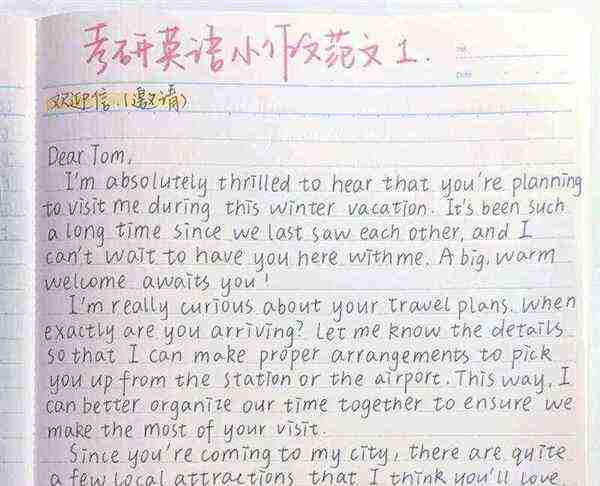 考研英语小作文范文1.
No.
Date
欢迎信.(邀请)
Dear Tom,
I'm absolutely thrilled to hear that you're planning
to visit me during this winter vacation. It's been such
a long time since we last saw each other, and I
can't wait to have you here with me. A big, warm
welcome awaits you!
I'm really curious about your travel plans. When
exactly are you arriving? Let me know the details
so that I can make proper arrangements to pick
you up from the station or the airport. This way, I
can better organize our time together to ensure we
make the most of your visit.
Since you're coming to my city, there are quite
a few local attractions that I think you'll love,